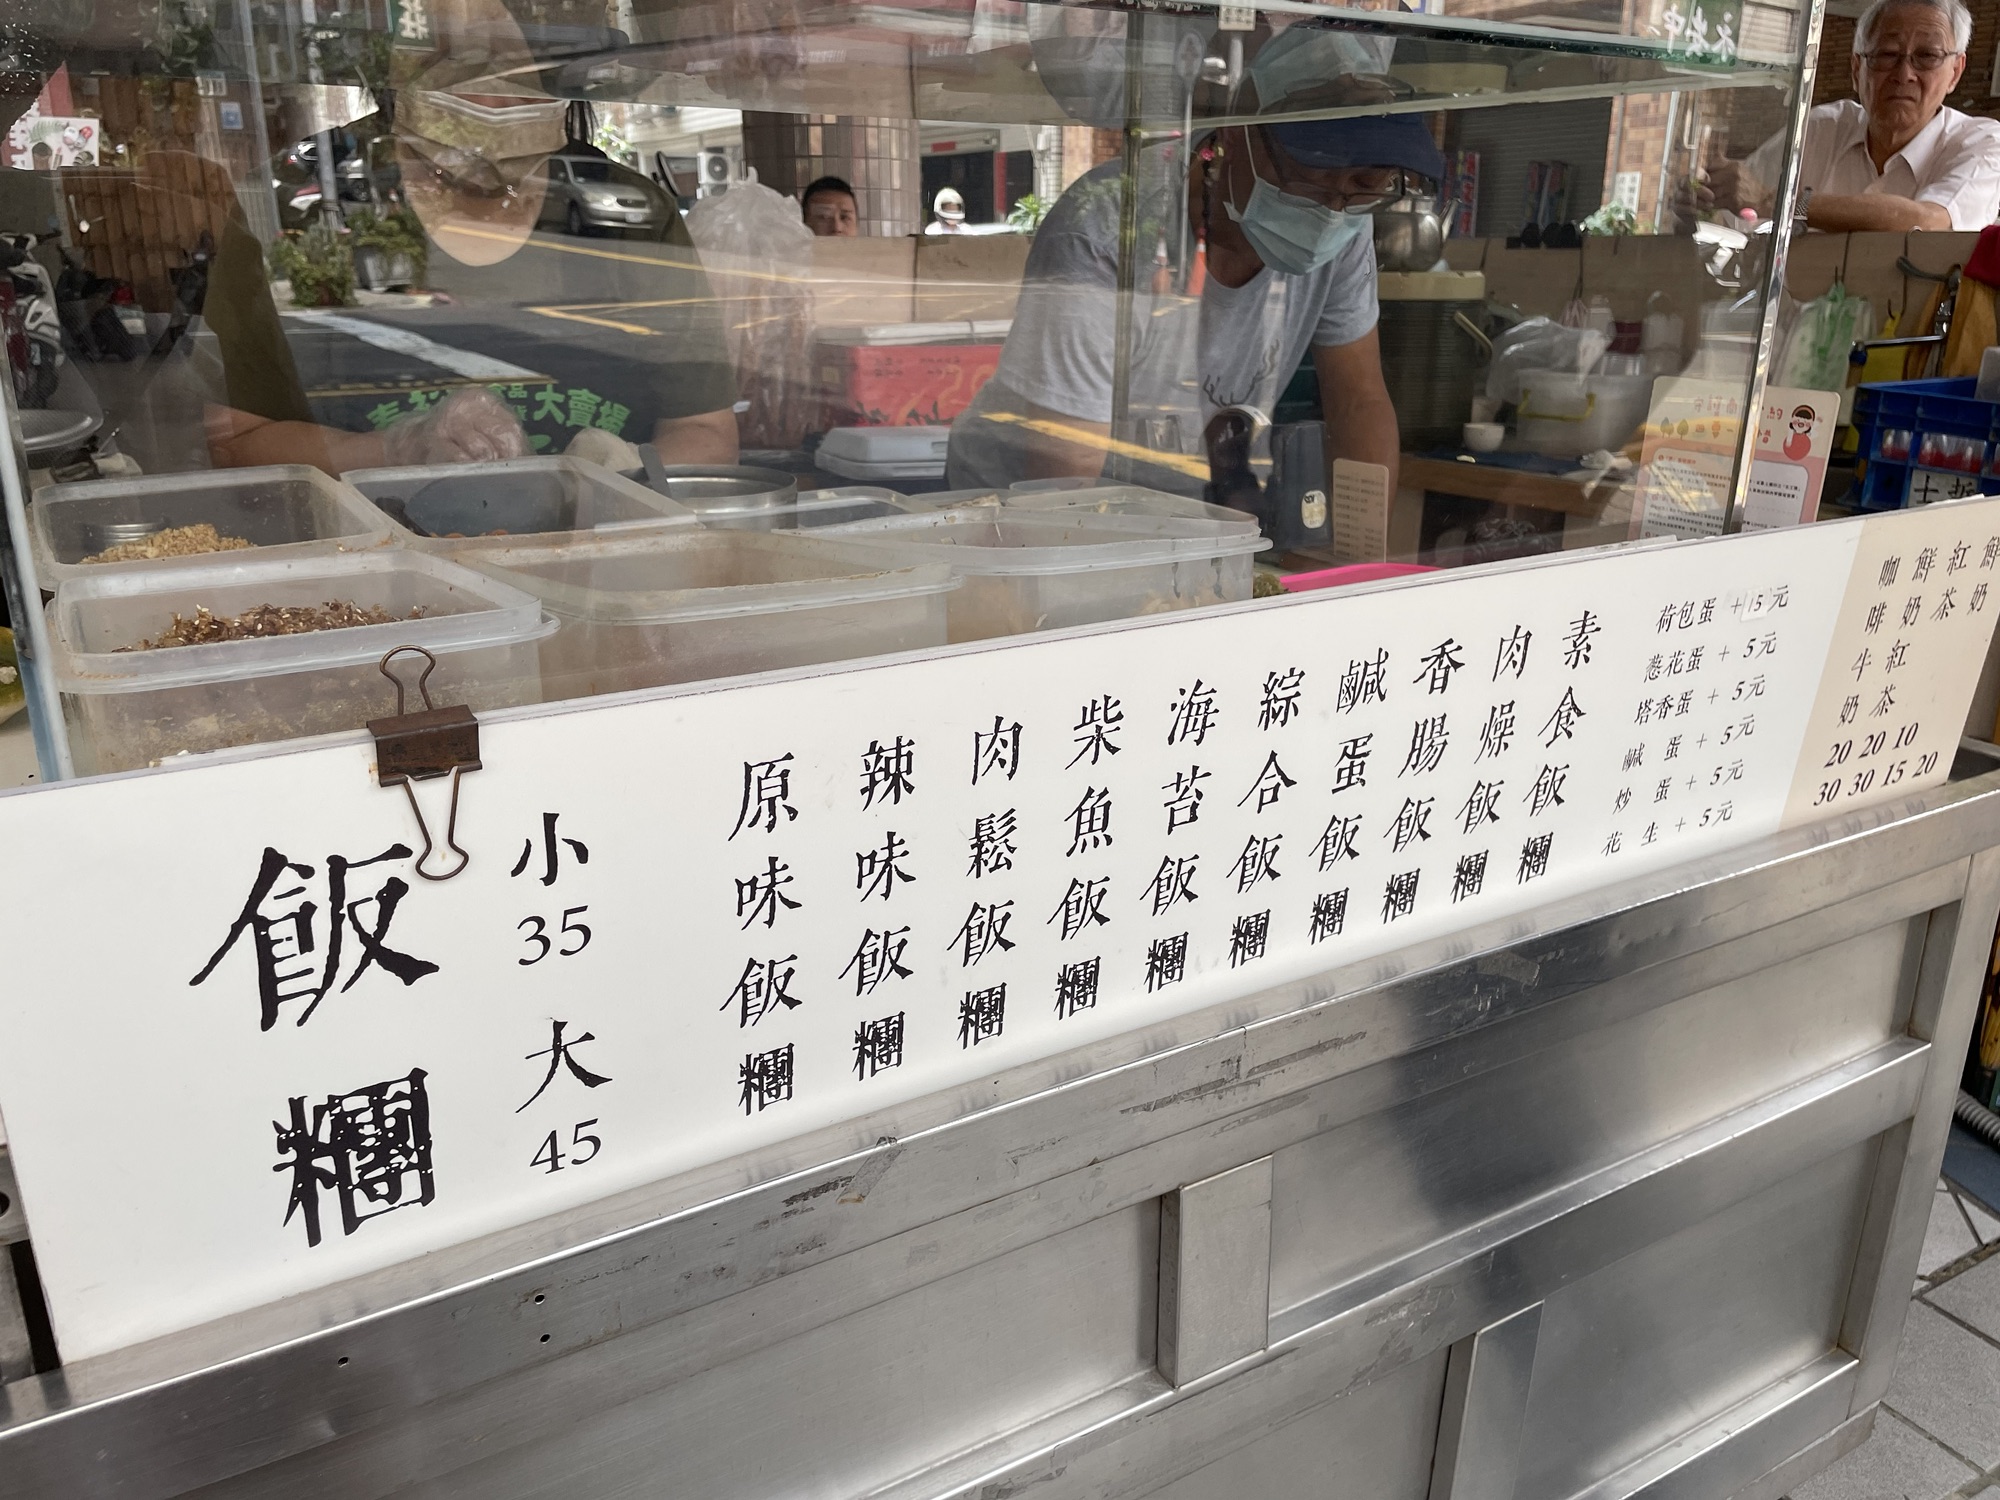 飯糰
小
35
大
45
原味飯糰
辣味飯糰
肉鬆飯糰
柴魚飯糰
海苔飯糰
綜合飯糰
鹹蛋飯糰
香腸飯糰
肉燥飯糰
素食飯糰
荷包蛋 + 15元
蔥花蛋 + 5元
塔香蛋 + 5元
鹹 蛋 + 5元
炒 蛋 + 5元
花 生 + 5元
咖啡牛奶 20 30
鮮奶紅茶 20 30
紅茶 10 15
鮮奶 20
大賣場